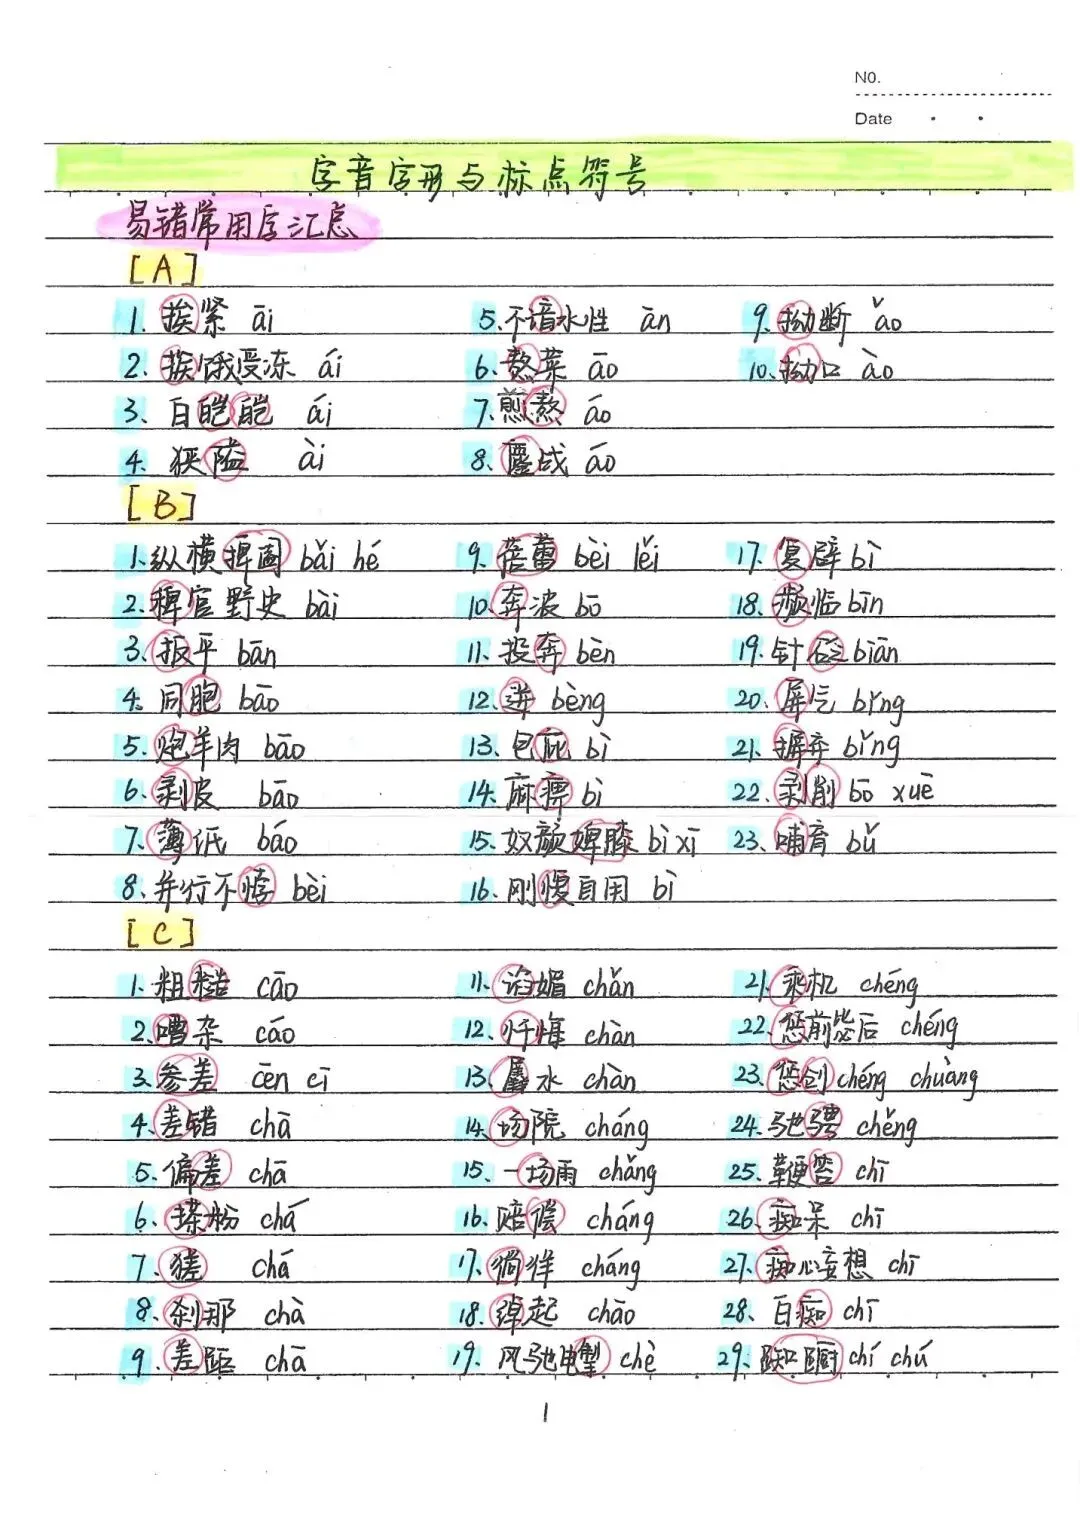 NO.
Date
字音字形与标点符号
易错常用字汇总
[A]
1. 挨紧 āi 5.不谙水性 ān 9.拗断 ǎo
2. 挨饿受冻 ái 6.熬菜 āo 10.拗口 ào
3、白皑皑 ái 7.煎熬 áo
4、狭隘 ài 8.鏖战 áo
[B]
1.纵横捭阖 bǎi hé 9.蓓蕾 bèi lěi 17.复辟 bì
2.稗官野史 bài 10.奔波 bō 18.濒临 bīn
3.扳平 bān 11.投奔 bèn 19.针砭 biān
4.同胞 bāo 12.迸 bèng 20.屏气 bǐng
5.炮羊肉 bāo 13、包庇 bì 21.摒弃 bǐng
6.剥皮 bāo 14.麻痹 bì 22.剥削 bō xuē
7.薄纸 báo 15.奴颜婢膝 bì xī 23.哺育 bǔ
8.并行不悖 bèi 16.刚愎自用 bì
[C]
1.粗糙 cāo 11.谄媚 chǎn 21.乘机 chéng
2.嘈杂 cáo 12.忏悔 chàn 22.惩前毖后 chéng
3.参差 cēn cī 13.羼水 chàn 23.惩创 chéng chuàng
4.差错 chā 14.场院 cháng 24.驰骋 chěng
5.偏差 chā 15.一场雨 chǎng 25.鞭笞 chī
6、搽粉 chá 16.赔偿 cháng 26.痴呆 chī
7.猹 chá 17.徜徉 cháng 27.痴心妄想 chī
8.刹那 chà 18.绰起 chāo 28.白痴 chī
9.差距 chā 19.风驰电掣 chè 29.踟蹰 chí chú
1